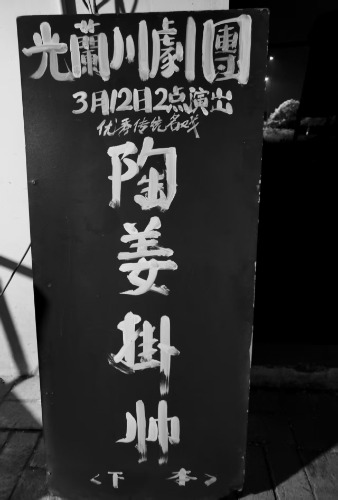 光蘭川劇團
3月12日2点演出
优秀传统名戏
陶姜掛帅
<下 本>